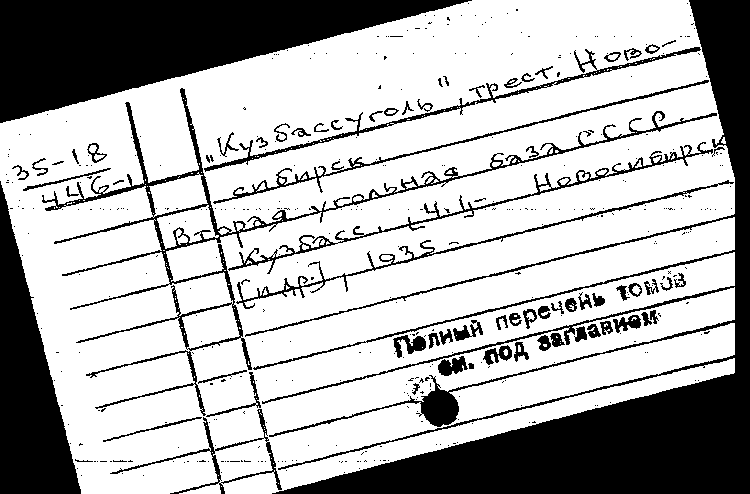 35-18
446-1
„Кузбассуголь", трест. Ново-
сибирск.
Вторая угольная база СССР.
Кузбасс. [Ч.]- Новосибирск
[и др.], 1935-
Полный перечень томов
см. под заглавием